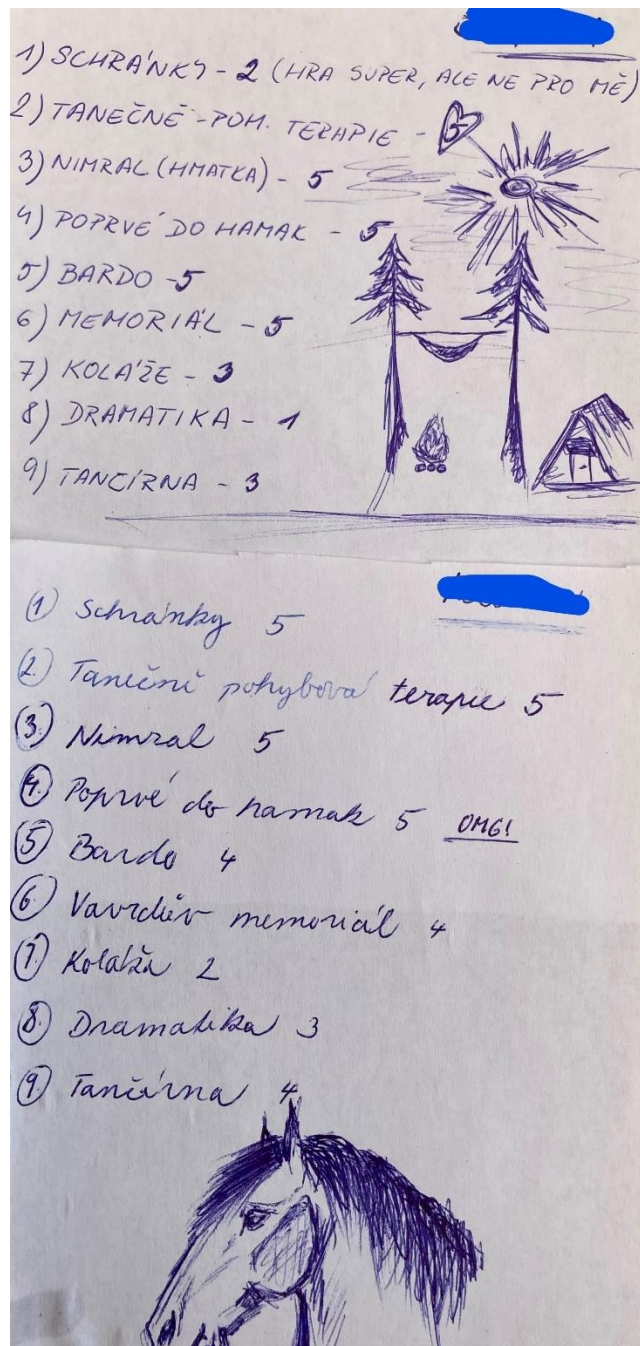 1) SCHRÁNKY - 2 (HRA SUPER, ALE NE PRO MĚ)
2) TANEČNĚ - POH. TERAPIE - 5
3) NIMRAL (HMATKA) - 5
4) POPRVÉ DO HAMAK - 5
5) BARDO - 5
6) MEMORIÁL - 5
7) KOLÁŽE - 3
8) DRAMATIKA - 1
9) TANCÍRNA - 3
1) Schránky 5
2. Tanečně pohybová terapie 5
3. Nimral 5
4. Poprvé do hamak 5 OMG!
5 Bardo 4
6 Vavrdův memoriál 4
7 Koláža 2
8. Dramatika 3
9. Tančírna 4